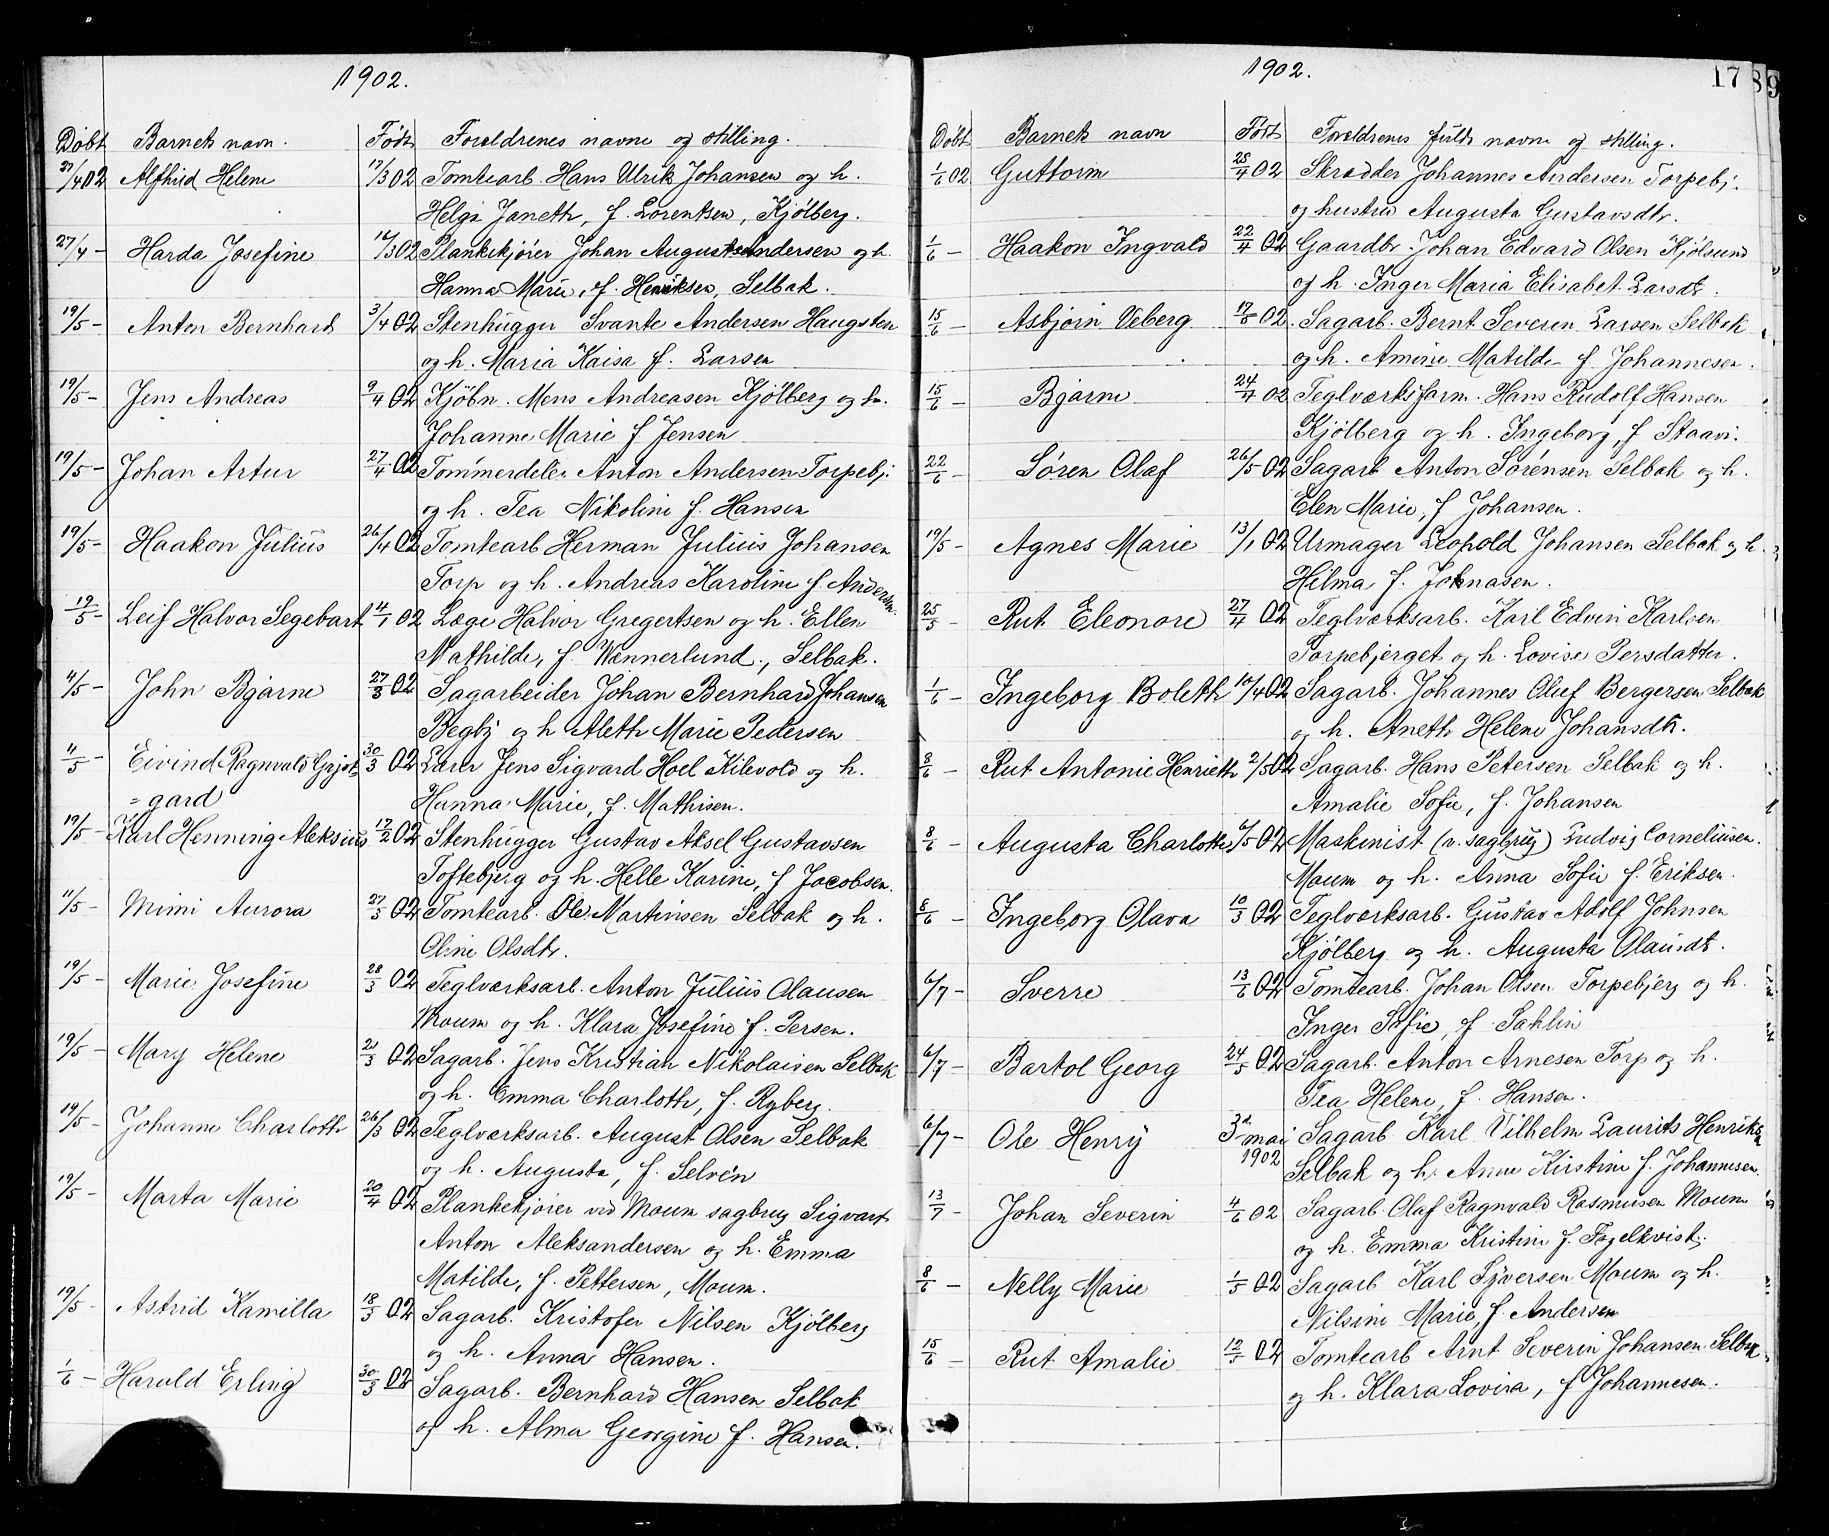 1902.
Døbt Barnets navn. Født Forældrenes navne og stilling.
27/4 02 Alfhild Helene 17/3 02 Tomtearb. Hans Ulrik Johansen og h.
Helga Janeth, f. Lorentsen, Kjölberg.
27/4 - Harda Josefine 16/3 02 Plankekjører Johan August Andersen og h.
Hanna Marie, f. Henriksen, Selbak.
19/5 - Anton Bernhard 3/4 02 Stenhugger Svante Andersen Haugsten
og h. Maria Kaisa f. Larsen
19/5 - Jens Andreas 9/4 02 Kjöbm. Mons Andreasen Kjölberg og h.
Johanne Marie f Jensen
19/5 - Johan Artur 27/4 02 Tömmerdeler Anton Andersen Torpebj.
og h. Tea Nikoline f. Hansen
19/5 - Haakon Julius 26/4 02 Tomtearb Herman Julius Johansen
Torp og h. Andreas Karoline f. Andersen.
19/5 - Leif Halvor Segebart 4/1 02 Læge Halvor Gregertsen og h. Ellen
Mathilde, f. Wennerlund., Selbak.
4/5 - John Bjarne 27/3 02 Sagarbeider Johan Bernhard Johansen
Begby og h Aleth Marie Pedersen
4/5 - Eivind Ragnvald Grjot= 30/3 02 Lærer Jens Sigvard Hoel Kilevold og h.
=gard Hanna Marie, f. Mathisen.
19/5 - Karl Henning Aleksius 17/2 02 Stenhugger Gustav Aksel Gustavsen
Toftebjerg og h. Helle Karine, f Jacobsen.
11/5 - Mimi Aurora 27/3 02 Tomtearb. Ole Martinsen Selbak og h.
Oline Olsdtr.
19/5 - Marie Josefine 28/3 02 Teglværksarb. Anton Julius Olausen
Moum og h. Klara Josefine f. Persen.
19/5 - Mary Helene 21/3 02 Sagarb. Jens Kristian Nikolaisen Selbak
og h. Emma Charloth, f. Ryberg.
19/5 - Johanne Charlotte 26/3 02 Teglværksarb. August Olsen Selbak
og h. Augusta, f. Selvén
19/5 - Marta Marie 20/4 02 Plankekjører ved Moum sagbrug Sigvart
Anton Aleksandersen og h. Emma
Matilde, f. Pettersen, Moum.
19/5 - Astrid Kamilla 18/3 02 Sagarb. Kristofer Nilsen Kjölberg
og h. Anna Hansen.
1/6 - Harald Erling 30/3 02 Sagarb. Bernhard Hansen Selbak
og h. Alma Georgine f. Hansen.
1902. 178
Døbt. Barnets navn Født Forældrenes fulde navne og stilling.
1/6 02 Guttorm 25/4 02 Skrædder Johannes Andersen Torpebj.
og hustru Augusta Gustavsdtr.
1/6 - Haakon Ingvald 22/4 02 Gaardbr. Johan Edvard Olsen Kjölsund
og h. Inger Maria Elisabet Larsdtr.
15/6 - Asbjørn Veberg 17/5 02 Sagarb. Bernt Severin Larsen Selbak
og h. Amine Matilde f. Johannesen.
15/6 - Bjarne 24/4 02 Teglværksform. Hans Rudolf Hansen
Kjölberg og h. Ingeborg, f Staavi.
22/6 - Sören Olaf 26/5 02 Sagarb Anton Sörensen Selbak og h.
Elen Marie, f Johansen.
19/5 - Agnes Marie 13/1 02 Urmager Leopold Johansen Selbak og h.
Hilma f. Johnasen.
25/5 - Rut Eleonore 27/4 02 Teglværksarb. Karl Edvin Karlsen
Torpebjerget og h. Lovise Persdatter.
1/6 - Ingeborg Boleth 10/4 02 Sagarb. Johannes Oluf Bergersen Selbak
og h. Aneth Helene Johansdtr.
8/6 - Rut Antonie Henriette 2/5 02 Sagarb. Hans Petersen Selbak og h.
Amalie Sofie, f. Johansen
8/6 - Augusta Charlotte 6/5 02 Maskinist (v. sagbrug) Ludvig Corneliusen.
Moum og h. Anna Sofie f. Eriksen.
8/6 - Ingeborg Olava 10/3 02 Teglværksarb. Gustav Adolf Johnsen
Kjölberg og h. Augusta Olausdtr.
6/7 - Sverre 13/6 02 Tomtearb. Johan Olsen Torpebjerg og h.
Inger Sofie, f Sahlin
6/7 - Bartol Georg 24/5 02 Sagarb. Anton Arnesen Torp og h.
Tea Helene, f. Hansen.
6/7 - Ole Henry 3die mai Sagarb. Karl Vilhelm Laurits Henriksen
1902 Selbak og h. Anne Kirstine f. Johannesen.
13/7 - Johan Severin 4/6 02 Sagarb. Olaf Ragnvald Rasmusen Moum
og h. Emma Kristine f. Fogelkvist.
8/6 - Nelly Marie 1/5 02 Sagarb Karl Syversen Moum og h.
Nilsine Marie, f. Andersen
15/6 - Rut Amalie 12/5 02 Tomtearb Arnt Severin Johansen Selbak
og h. Klara Lovisa, f Johannesen.